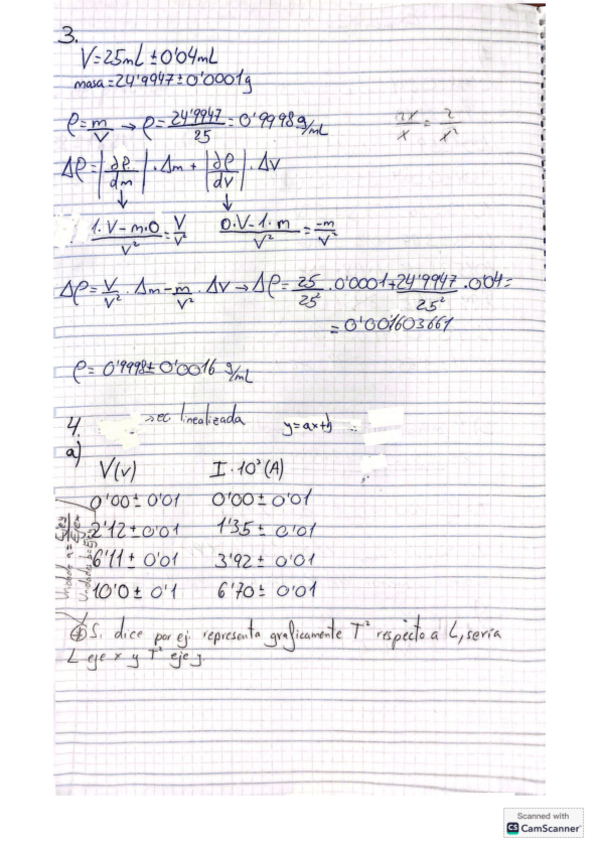 3.
V=25mL ± 0'04mL
masa=24'9947±0'0001g
ρ=m/V → ρ=24'9947/25=0'9998 g/mL
2x/x = 2/x²
Δρ=|∂ρ/dm|·Δm+|∂ρ/dV|·ΔV
↓ ↓
1·V-m·0/V²=V/V² 0·V-1·m/V²=-m/V²
Δρ=V/V²·Δm-m/V²·ΔV→Δρ=25/25²·0'0001+24'9947/25²·0'04=
=0'001603661
ρ=0'9998±0'0016 g/mL
4. →ec. linealizada y=ax+b
a)
V(v) I·10³(A)
0'00±0'01 0'00±0'01
2'12±0'01 1'35±0'01
6'11±0'01 3'92±0'01
10'0±0'1 6'70±0'01
Si dice por ej. representa graficamente T² respecto a L, sería
L eje x y T² eje y.
Scanned with
CS CamScanner